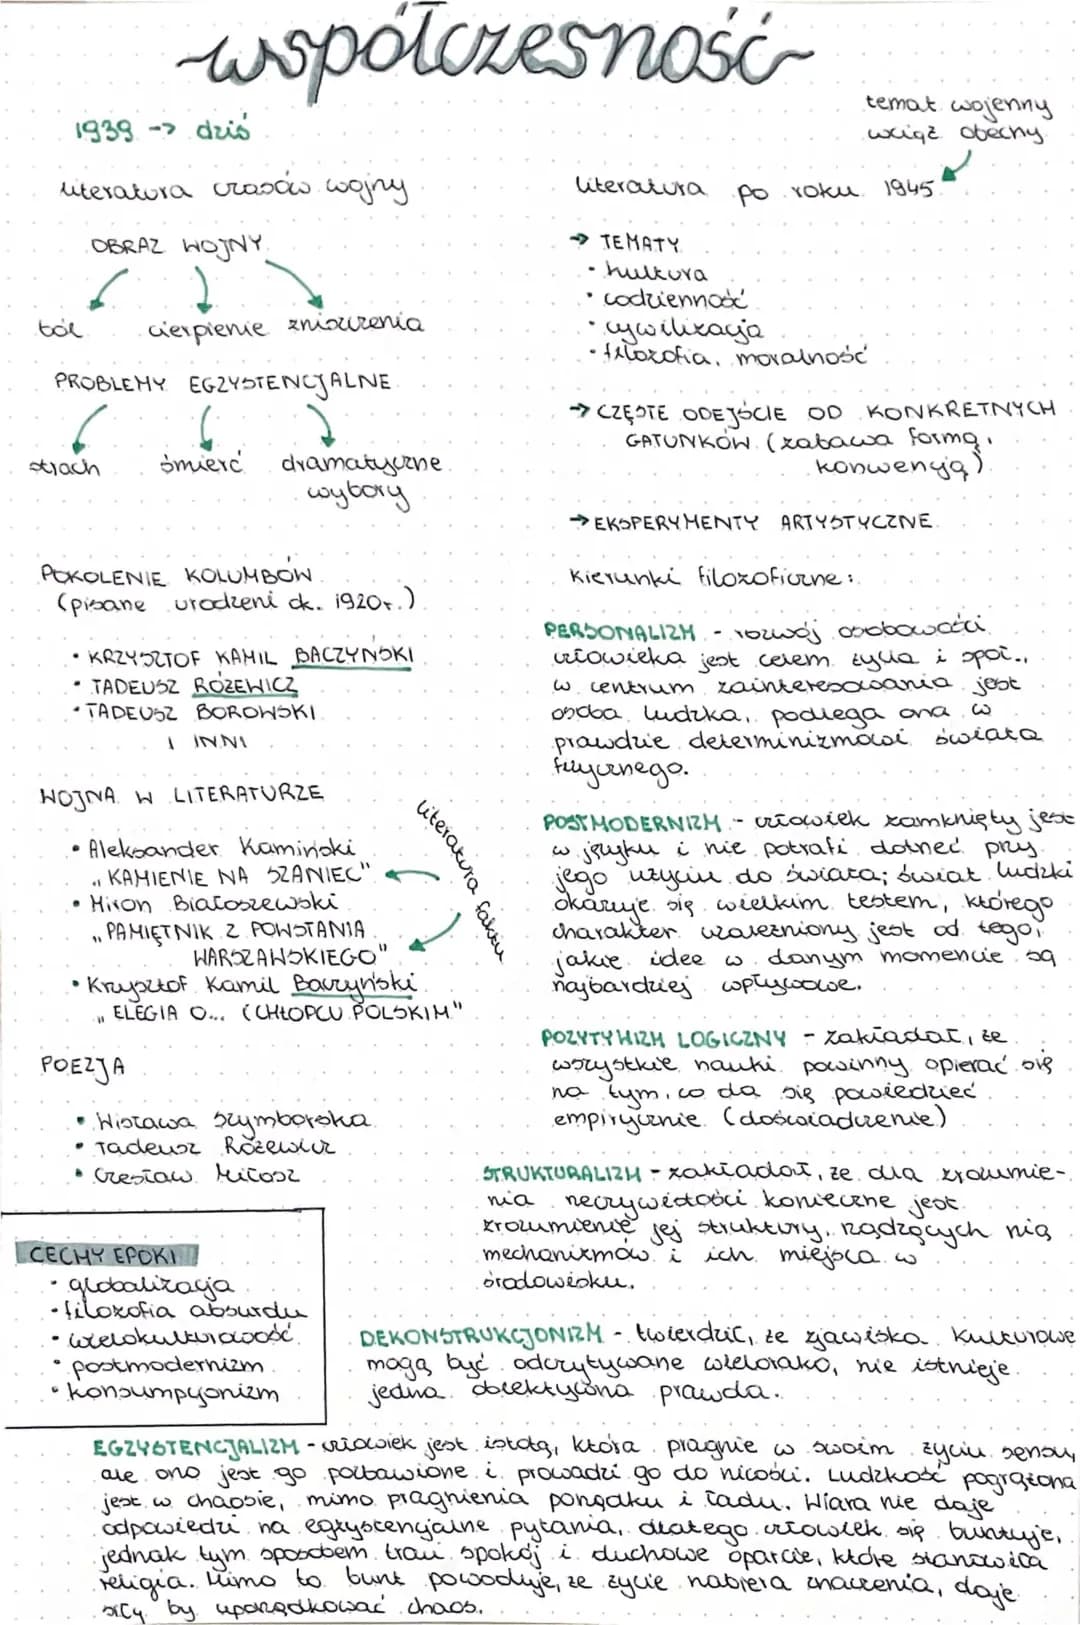 współczesność
1939 -> dziś
literatura czasów wojny
OBRAZ WOJNY
ból cierpienie zniszczenia
PROBLEMY EGZYSTENCJALNE
strach śmierć dramatyczne
wybory
POKOLENIE KOLUMBÓW
(pisane urodzeni ok. 1920r.)
• KRZYSZTOF KAMIL BACZYŃSKI
• TADEUSZ RÓŻEWICZ
• TADEUSZ BOROWSKI
I INNI
WOJNA W LITERATURZE
• Aleksander Kamiński
„KAMIENIE NA SZANIEC"
• Miron Białoszewski
„PAMIĘTNIK Z POWSTANIA
WARSZAWSKIEGO"
• Krzysztof Kamil Baczyński
„ELEGIA O... (CHŁOPCU POLSKIM"
literatura faktu
POEZJA
• Wisława Szymborska
• Tadeusz Różewicz
• Czesław Miłosz
CECHY EPOKI
• globalizacja
• filozofia absurdu
• wielokulturowość
• postmodernizm
• konsumpcjonizm
temat wojenny
wciąż obecny
literatura po roku 1945
→ TEMATY
• kultura
• codzienność
• cywilizacja
• filozofia, moralność
→ CZĘSTE ODEJŚCIE OD KONKRETNYCH
GATUNKÓW (zabawa formą,
konwencją)
→ EKSPERYMENTY ARTYSTYCZNE
Kierunki filozoficzne:
PERSONALIZM - rozwój osobowości
człowieka jest celem życia i społ.,
w centrum zainteresowania jest
osoba ludzka, podlega ona w
prawdzie determinizmowi świata
fizycznego.
POSTMODERNIZM - człowiek zamknięty jest
w języku i nie potrafi dotrzeć przy
jego użyciu do świata; świat ludzki
okazuje się wielkim tekstem, którego
charakter uzależniony jest od tego,
jakie idee w danym momencie są
najbardziej wpływowe.
POZYTYWIZM LOGICZNY - zakładał, że
wszystkie nauki powinny opierać się
na tym, co da się powiedzieć
empirycznie (doświadczenie)
STRUKTURALIZM - zakładał, że dla zrozumie-
nia rzeczywistości konieczne jest
zrozumienie jej struktury, rządzących nią
mechanizmów i ich miejsca w
środowisku.
DEKONSTRUKCJONIZM - twierdzić, że zjawiska kulturowe
mogą być odczytywane wielorako, nie istnieje
jedna obiektywna prawda.
EGZYSTENCJALIZM - człowiek jest istotą, która pragnie w swoim życiu sensu,
ale ono jest go pozbawione i prowadzi go do nicości. Ludzkość pogrążona
jest w chaosie, mimo pragnienia porządku i ładu. Wiara nie daje
odpowiedzi na egzystencjalne pytania, dlatego człowiek się buntuje,
jednak tym sposobem traci spokój i duchowe oparcie, które stanowiła
religia. Mimo to bunt powoduje, że życie nabiera znaczenia, daje
siły by uporządkować chaos.